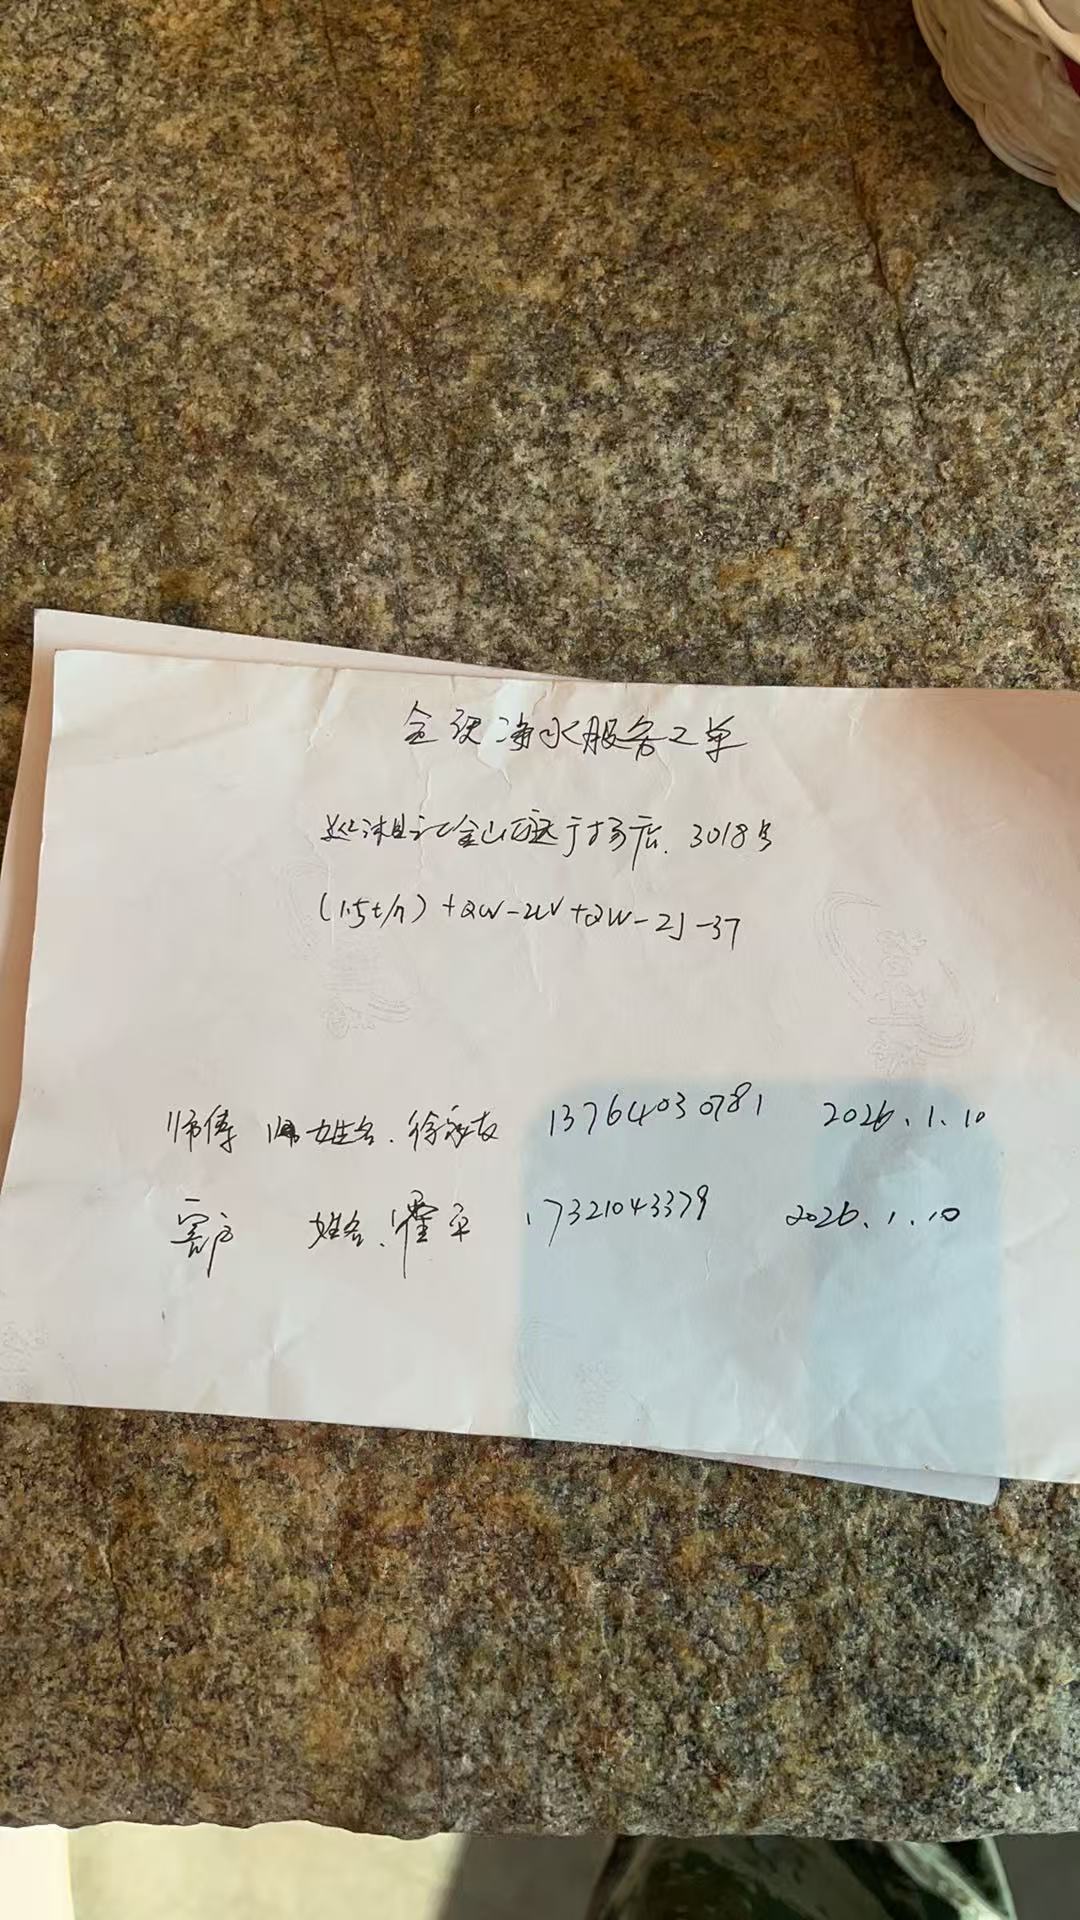 全效净水服务工单
金山 3018号
(1.5t/h)+QW-2UV+QW-2J-37
师傅 姓名.徐家友 13764030781 2026.1.10
客户 姓名.霍平 17321043379 2026.1.10